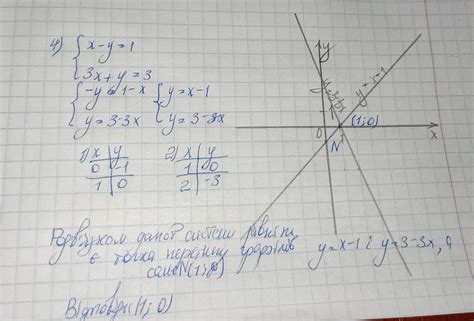 4) { x-y=1
{ 3x+y=3
{ -y=1-x { y=x-1
{ y=3-3x { y=3-3x
1) x | y 2) x | y
0 | -1 1 | 0
1 | 0 2 | -3
y
y=x-1
(1;0)
0 N x
Розв'язком даної системи рівнянь
є точка перетину графіків y=x-1 і y=3-3x, а
саме N(1;0)
Відповідь: (1; 0)